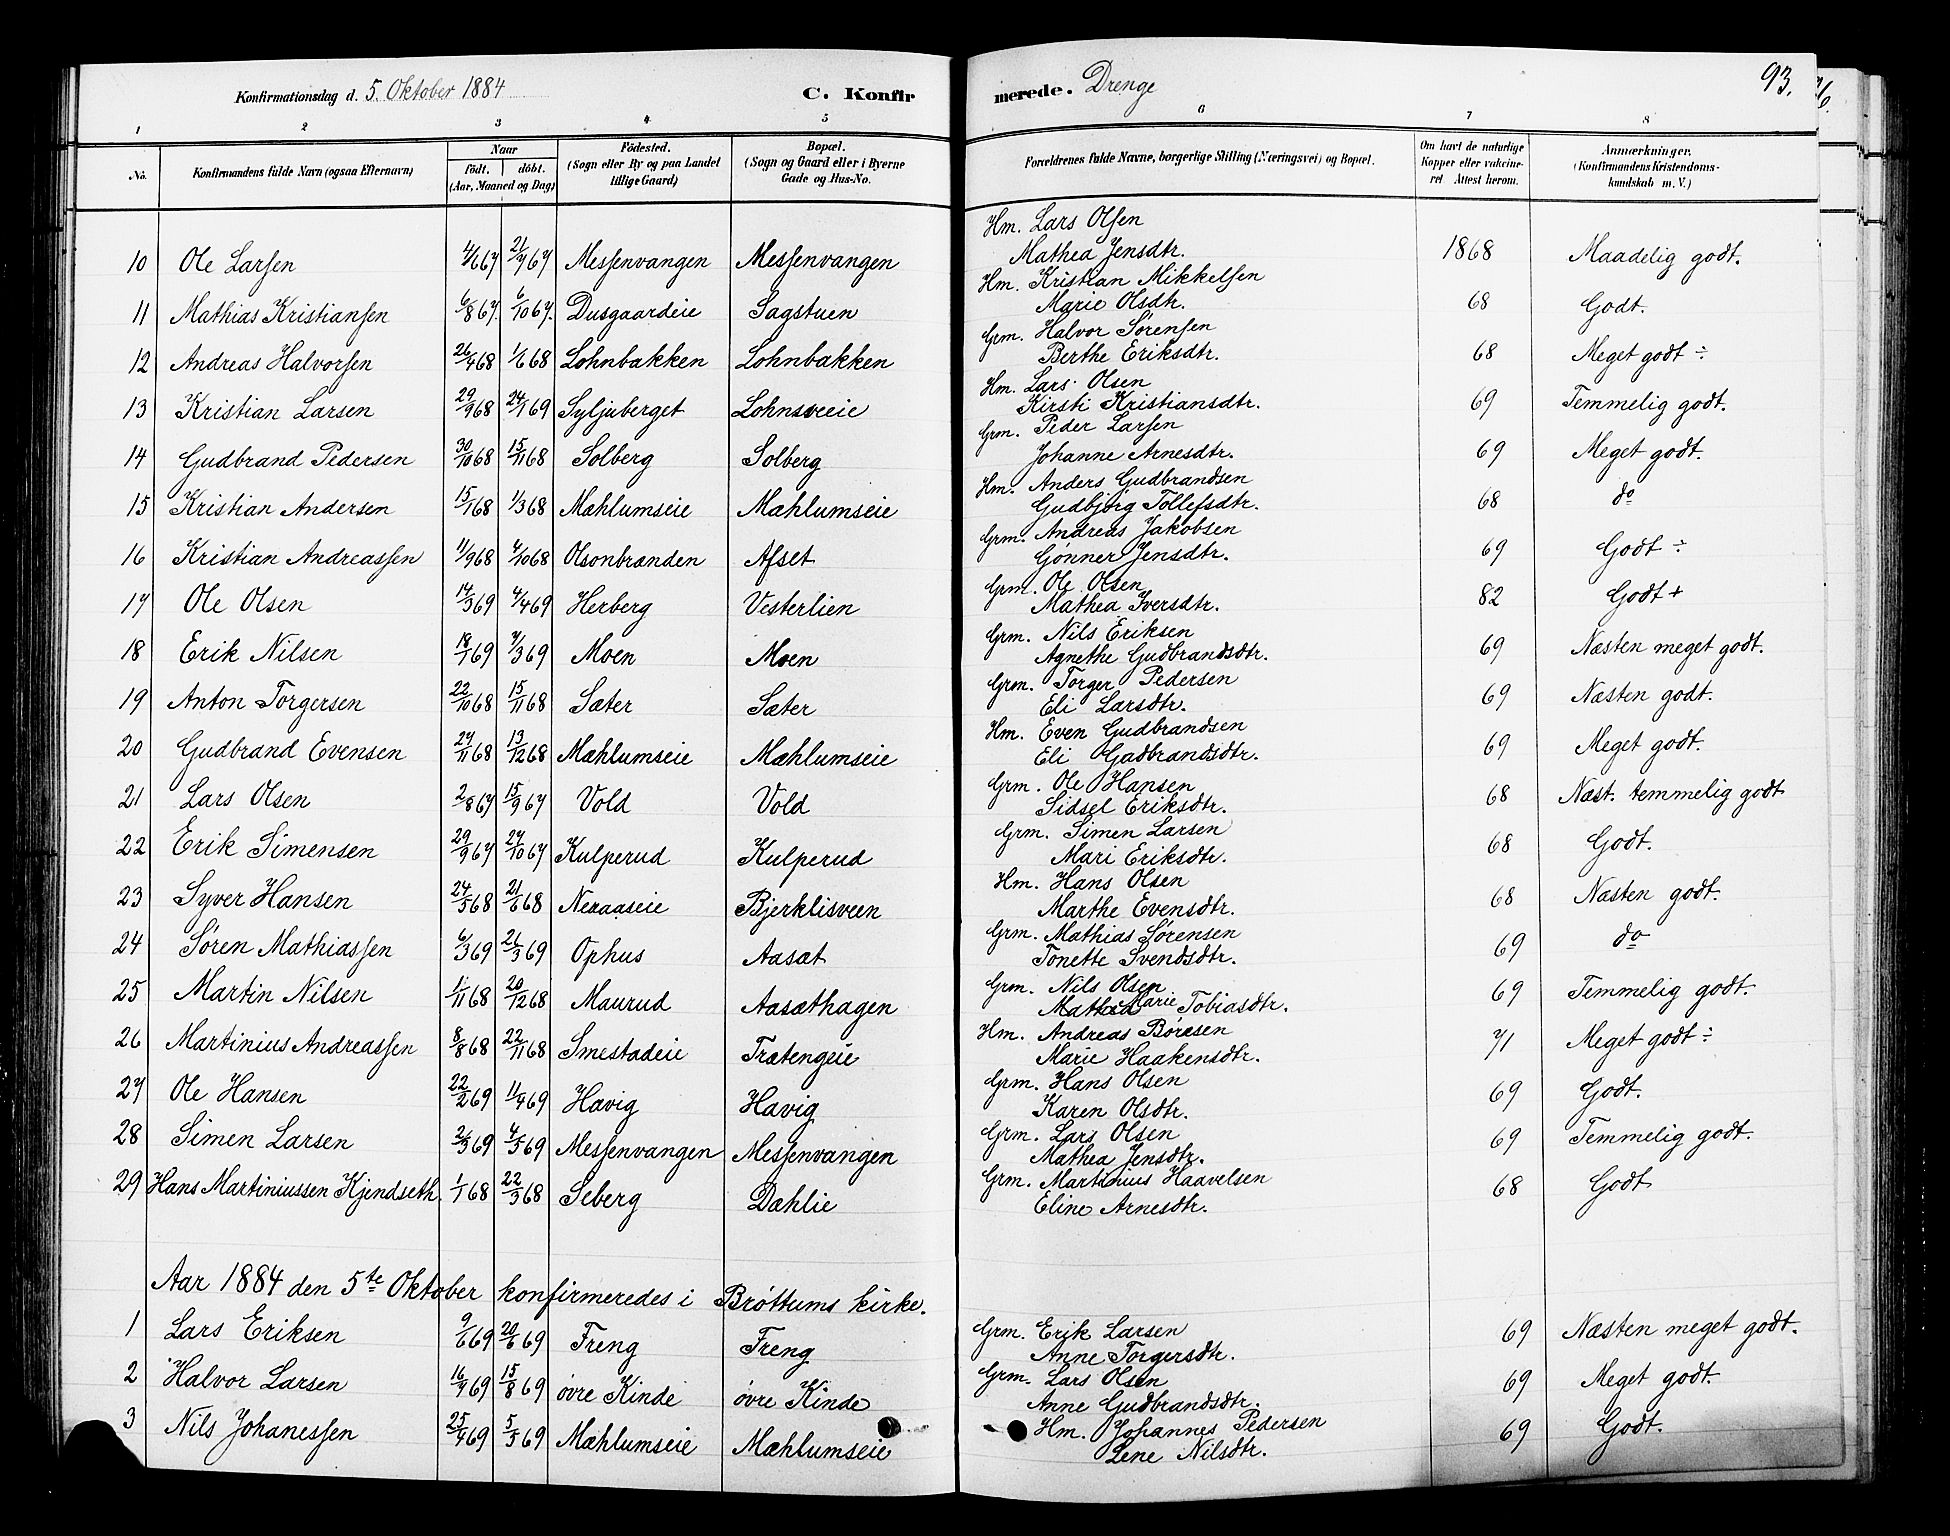 93.
Konfirmationsdag d. 5. Oktober 1884 C. Konfirmerede. Drenge
1 2 3 4 5 6 7 8
No. Konfirmandens fulde Navn (ogsaa Efternavn) Naar født. døbt. (Aar, Maaned og Dag) Fødested. (Sogn eller By og paa Landet tillige Gaard) Bopæl. (Sogn og Gaard eller i Byerne Gade og Hus-No. Forældrenes fulde Navne, borgerlige Stilling (Næringsvei) og Bopæl. Om havt de naturlige Kopper eller vaccineret Attest herom. Anmærkninger. (Konfirmandens Kristendomskundskab m. V.)
10 Ole Larsen 4/6 67 21/7 67 Messenvangen Messenvangen Hm. Lars Olsen Mathea Jensdtr. 1868 Maadelig godt.
11 Mathias Kristiansen 6/8 67. 6/10 67. Dusgaardeie Sagstuen Hm. Kristian Mikkelsen Marie Olsdtr. 68 Godt.
12 Andreas Halvorsen 26/4 68 1/6 68 Lohnbakken Lohnbakken Grm. Halvor Sørensen Berthe Eriksdtr. 68 Meget godt ÷
13 Kristian Larsen 29/9 68 24/1 69 Syljuberget Lohnsveeie Hm. Lars Olsen Kirsti Kristiansdtr. 69 Temmelig godt.
14 Gudbrand Pedersen 30/10 68 15/11 68 Solberg Solberg Grm. Peder Larsen Johanne Arnesdtr. 69 Meget godt.
15 Kristian Andersen 15/1 68 1/3 68 Mæhlumseie Mæhlumseie Hm. Anders Gudbrandsen Gudbjørg Tollefsdtr. 68 do
16 Kristian Andreassen 11/9 68 4/10 68 Olsonbrænden Afset Grm. Andreas Jakobsen Gønner Jensdtr. 69 Godt ÷
17 Ole Olsen 14/3 69 4/4 69 Herberg Vesterlien Grm. Ole Olsen Mathea Iversdtr. 82 Godt +
18 Erik Nilsen 18/1 69 7/3 69 Moen Moen Grm. Nils Eriksen Agnethe Gudbrandsdtr. 69 Næsten meget godt.
19 Anton Torgersen 22/10 68 15/11 68 Sæter Sæter Grm. Torger Pedersen Eli Larsdtr. 69 Næsten godt.
20 Gudbrand Evensen 27/11 68 13/12 68 Mæhlumseie Mæhlumseie Hm. Even Gudbrandsen Eli Gudbrandsdtr. 69 Meget godt.
21 Lars Olsen 2/8 67 15/9 67 Vold Vold Grm. Ole Hansen Sidsel Eriksdtr. 68 Næst. temmelig godt
22 Erik Simensen 29/9 67 27/10 67 Kulperud Kulperud Grm. Simen Larsen Mari Eriksdtr. 68 Godt.
23 Syver Hansen 24/5 68 21/6 68 Neraaseie Bjerklisveen Hm. Hans Olsen Marthe Evensdtr. 68 Næsten godt.
24 Søren Mathiassen 6/3 69 26/3 69 Ophus Aasæt Grm. Mathias Sørensen Tonette Svendsdtr. 69 do
25 Martin Nilsen 1/11 68 20/12 68 Maurud Aasæthagen Grm. Nils Olsen Mathea Marie Tobiasdtr. 69 Temmelig godt.
26 Martinius Andreassen 8/8 68 22/11 68 Smestadeie Trætengeie Hm. Andreas Børesen Marie Haakensdtr. 71 Meget godt ÷
27 Ole Hansen 22/2 69 11/4 69 Hævig Hævig Grm. Hans Olsen Karen Olsdtr. 69 Godt.
28 Simen Larsen 69 4/5 69 Messenvangen Messenvangen Grm. Lars Olsen Mathea Jensdtr. 69 Temmelig godt.
29 Hans Martiniussen Kjendseth. 1/1 68 22/3 68 Seberg Dæhlie Grm. Martinius Haavelsen Eline Arnesdtr. 68 Godt
Aar 1884 den 5te Oktober konfirmeredes i Brøttums kirke.
1 Lars Eriksen 9/1 69 20/6 69 Freng Freng Grm. Erik Larsen Anne Torgersdtr. 69 Næsten meget godt.
2 Halvor Larsen 16/7 69 15/8 69 øvre Kinde øvre Kinde Grm. Lars Olsen Anne Gudbrandsdtr. 69 Meget godt.
3 Nils Johanessen 25/4 69 5/5 69 Mæhlumseie Mæhlumseie Hm. Johannes Pedersen Lene Nilsdtr. 69 Godt.